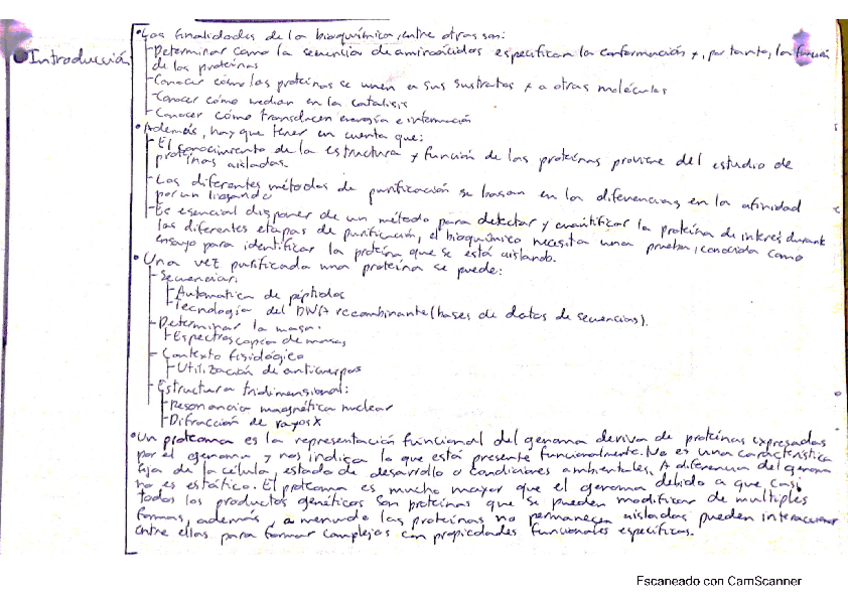 •Las finalidades de la bioquímica, entre otras son:
●Introducción
-Determinar como la secuencia de aminoácidos especifican la conformación y, por tanto, la función
de las proteínas
-Conocer cómo las proteínas se unen a sus sustratos y a otras moléculas
-Conocer cómo median en la catálisis
-Conocer cómo transducen energía e información
•Además, hay que tener en cuenta que:
-El conocimiento de la estructura y función de las proteínas proviene del estudio de
proteínas aisladas.
-Los diferentes métodos de purificación se basan en las diferencias, en la afinidad
por un ligando
-Es esencial disponer de un método para detectar y cuantificar la proteína de interés durante
las diferentes etapas de purificación, el bioquímico necesita una prueba, conocida como
ensayo para identificar la proteína que se está aislando.
•Una vez purificada una proteína se puede:
-Secuenciar:
-Automática de péptidos
-Tecnología del DNA recombinante (bases de datos de secuencias).
-Determinar la masa:
-Espectroscopía de masas
-Contexto fisiológico
-Utilización de anticuerpos
-Estructura tridimensional:
-Resonancia magnética nuclear
-Difracción de rayos X
•Un proteoma es la representación funcional del genoma deriva de proteínas expresadas
por el genoma y nos indica lo que está presente funcionalmente. No es una característica
fija de la célula, estado de desarrollo o condiciones ambientales. A diferencia del genoma
no es estático. El proteoma es mucho mayor que el genoma debido a que casi
todos los productos genéticos son proteínas que se pueden modificar de multiples
formas, además, a menudo las proteínas no permanecen aisladas pueden interaccionar
entre ellas para formar complejos con propiedades funcionales específicas.
Escaneado con CamScanner